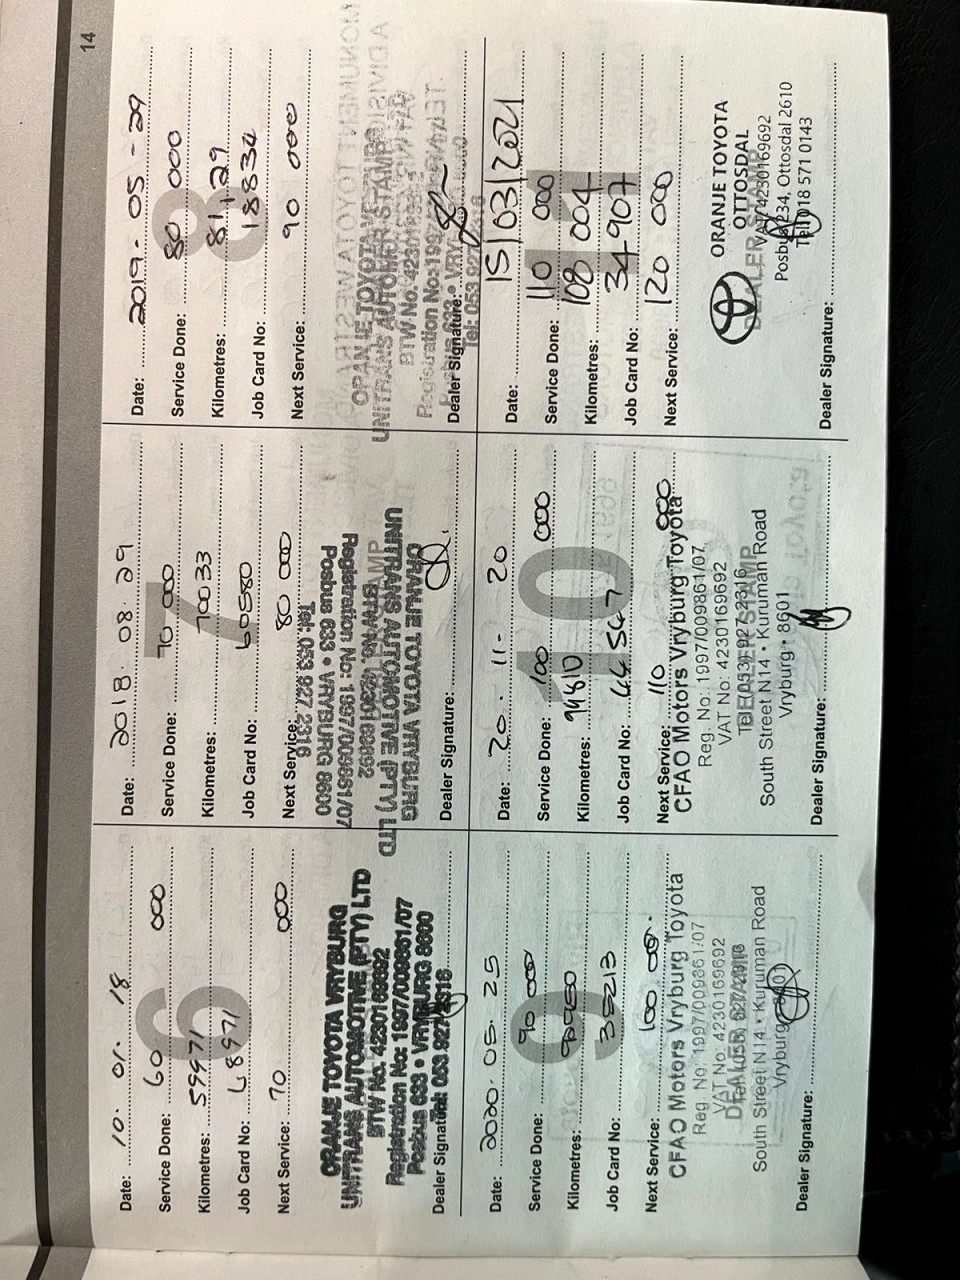 14
6
Date: 10. 01. 18
Service Done: 60 000
Kilometres: 59971
Job Card No: 68971
Next Service: 70 000
ORANJE TOYOTA VRYBURG
UNITRANS AUTOMOTIVE (PTY) LTD
BTW No. 4230169692
Registration No: 1997/009861/07
Posbus 633 • VRYBURG 8600
Tel: 053 927 2316
Dealer Signature:
7
Date: 2018. 08. 29
Service Done: 70 000
Kilometres: 70033
Job Card No: 60580
Next Service: 80 000
Tel: 053 927 2316
Posbus 633 • VRYBURG 8600
Registration No: 1997/009861/07
BTW No. 4230169692
UNITRANS AUTOMOTIVE (PTY) LTD
ORANJE TOYOTA VRYBURG
Dealer Signature:
8
Date: 2019. 05 - 29
Service Done: 80 000
Kilometres: 81129
Job Card No: 18834
Next Service: 90 000
ORANJE TOYOTA
UNITRANS AUTOMO
DEALER STAMP
BTW No. 42301
Registration No: 1997
Posbus 633 • VRY
Tel: 053 927
Dealer Signature:
9
Date: 2020. 05. 25
Service Done: 90 000
Kilometres: 90950
Job Card No: 35213
Next Service: 100 000.
CFAO Motors Vryburg Toyota
Reg. No: 1997/009861/07
VAT No: 4230169692
DEALER STAMP
Tel: 053 927 2316
South Street N14 • Kuruman Road
Vryburg • 8601
Dealer Signature:
10
Date: 20. 11. 20
Service Done: 100 000
Kilometres: 94810
Job Card No: 44547
Next Service: 110 000
CFAO Motors Vryburg Toyota
Reg. No: 1997/009861/07
VAT No: 4230169692
DEALER STAMP
Tel: (053) 927 2316
South Street N14 • Kuruman Road
Vryburg • 8601
Dealer Signature:
11
Date: 15/03/2021
Service Done: 110 000
Kilometres: 108 004
Job Card No: 34907
Next Service: 120 000
ORANJE TOYOTA
OTTOSDAL
DEALER STAMP
VAT: 4230169692
Posbus 234, Ottosdal 2610
Tel: 018 571 0143
Dealer Signature: